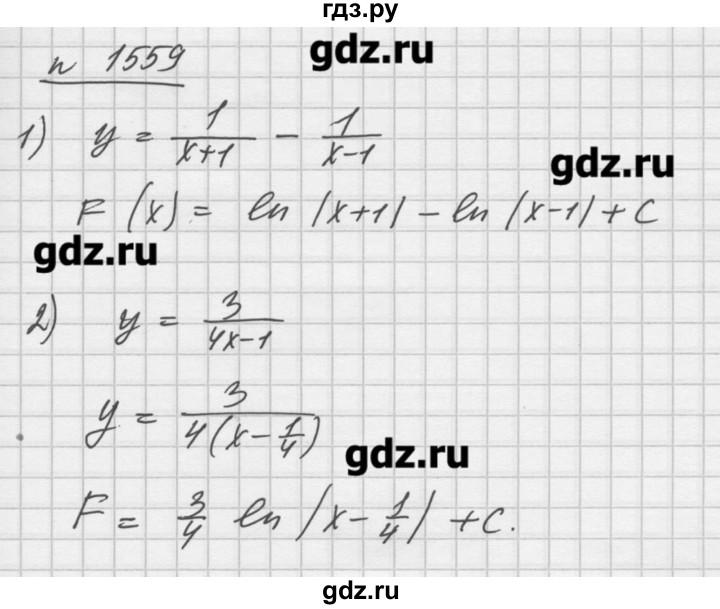 гдз.ру
n 1559
gdz.ru
1) y = 1/(x+1) - 1/(x-1)
gdz.ru
F(x) = ln |x+1| - ln |x-1| + C
gdz.ru
2) y = 3/(4x-1)
y = 3/(4(x - 1/4))
gdz.ru
F = 3/4 ln |x - 1/4| + C.
gdz.ru